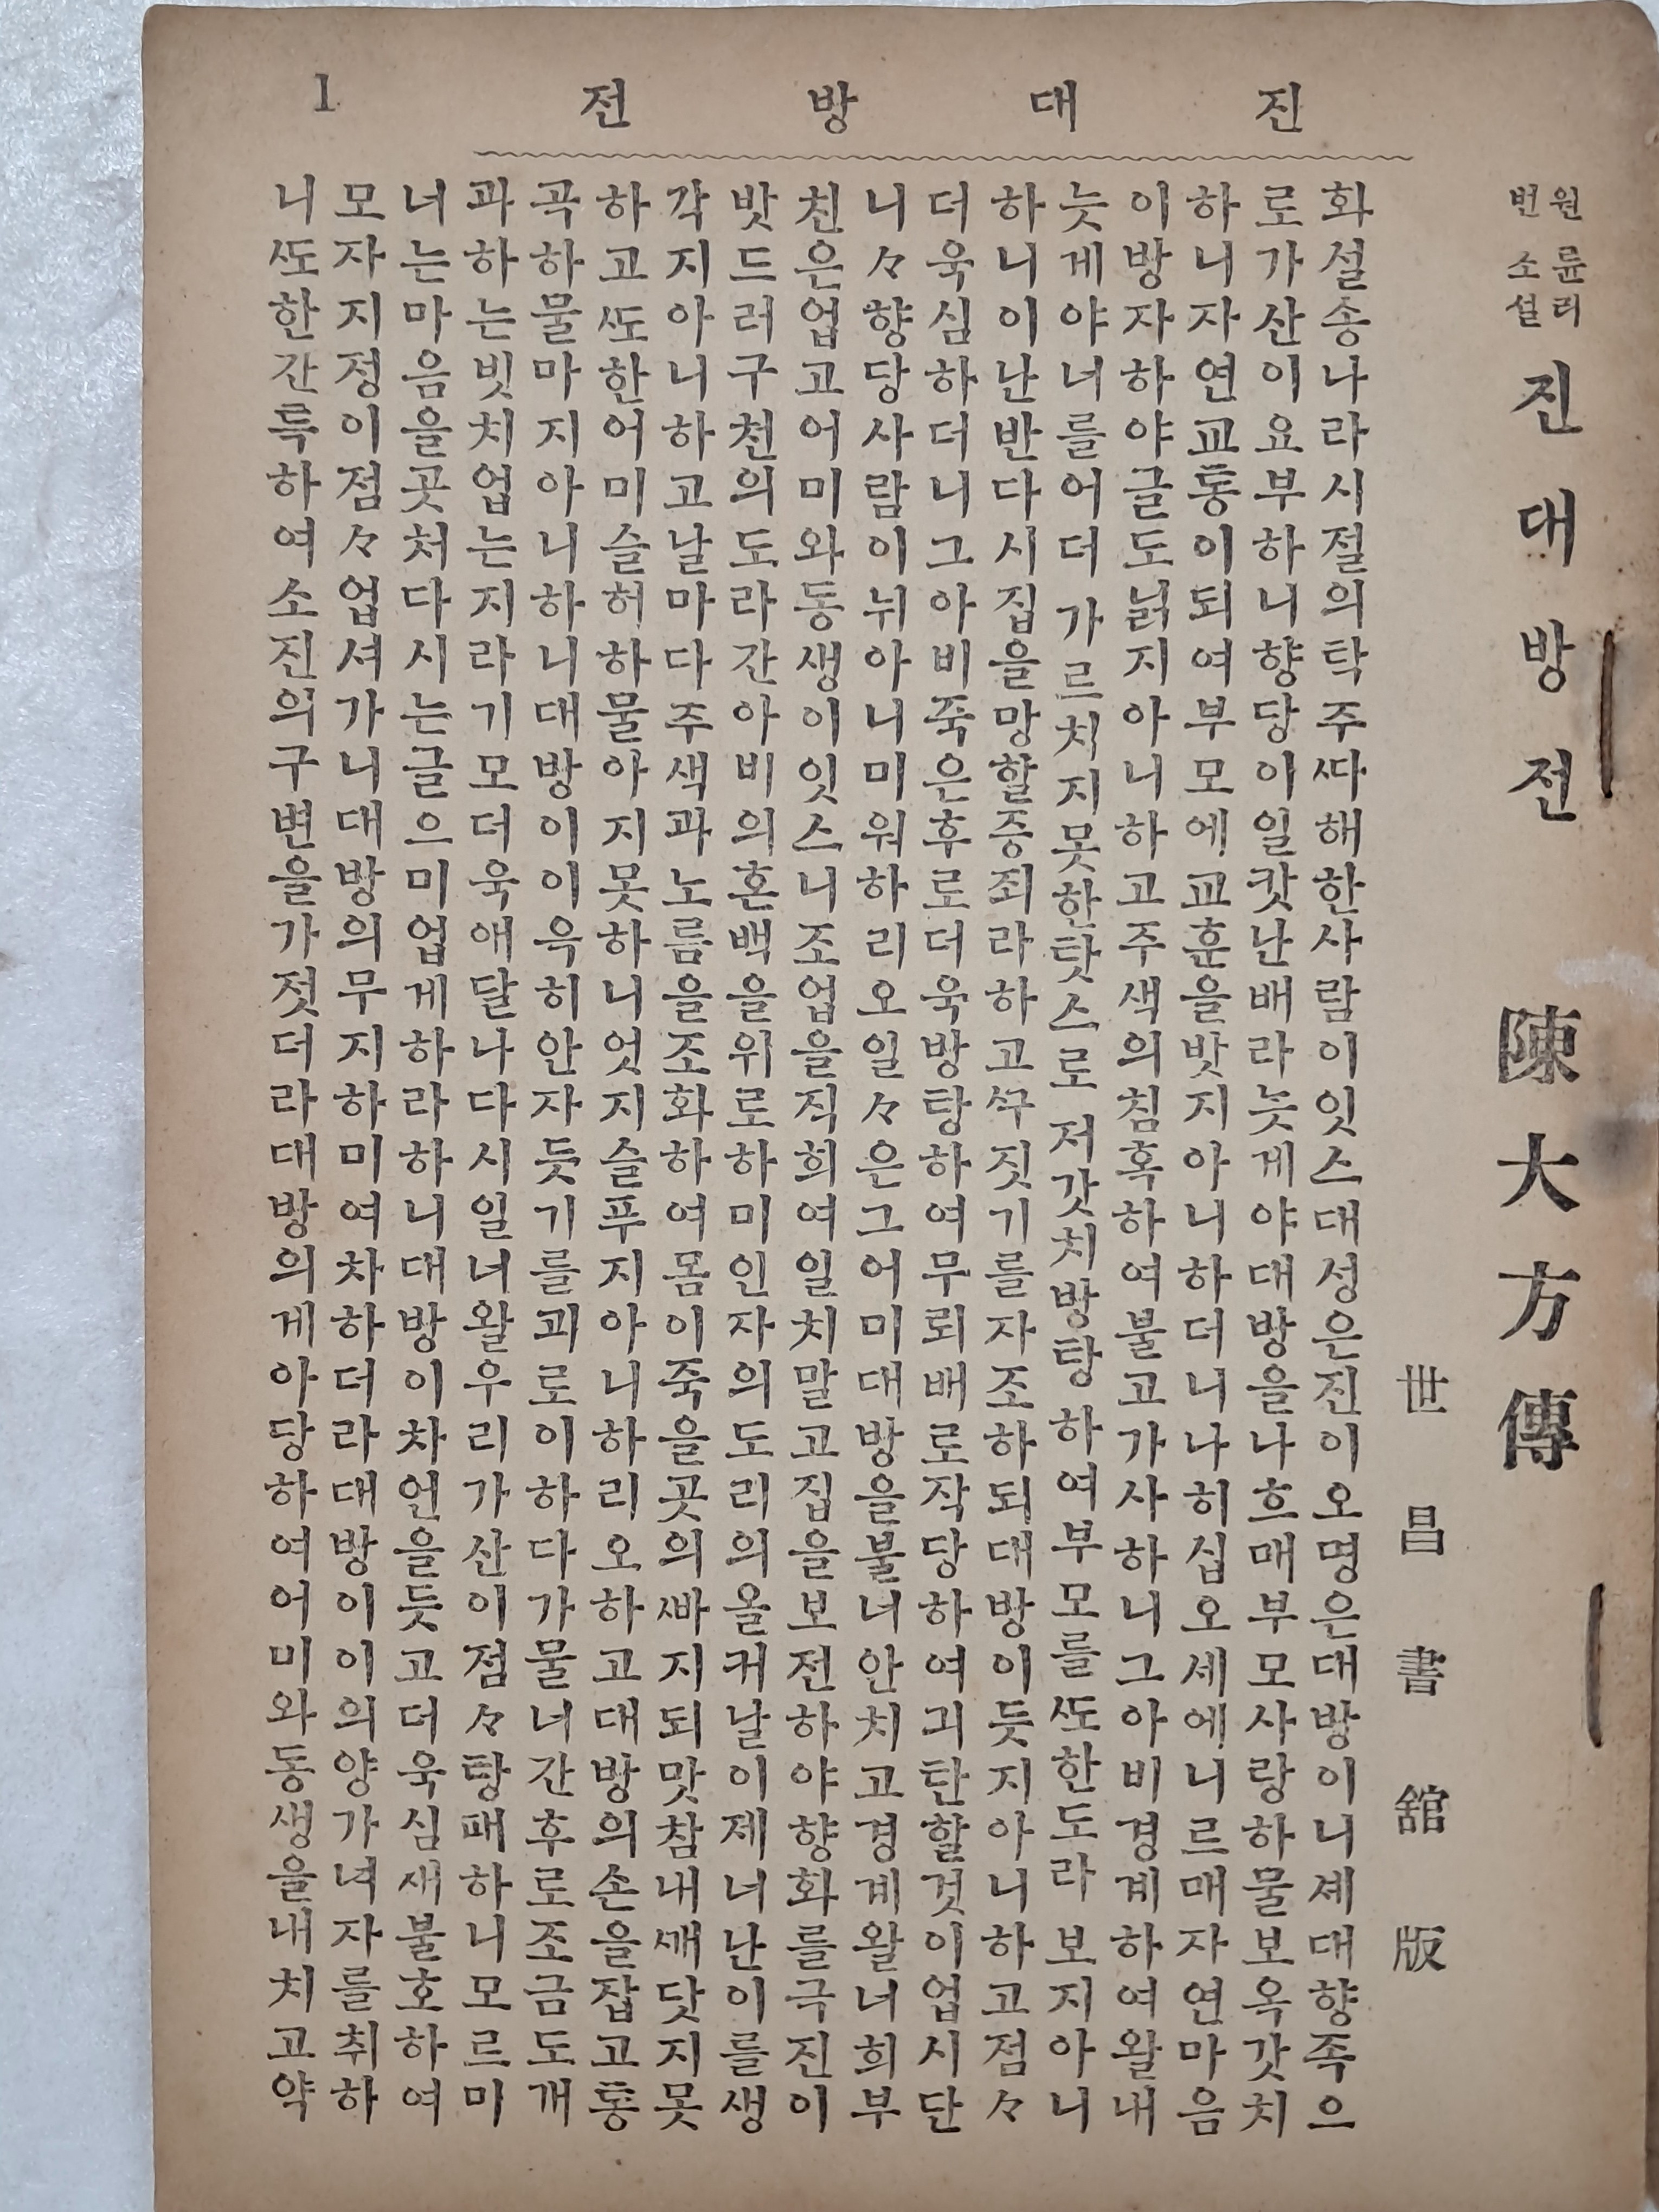 진대방전 1
원륜리
번소설
진대방전 陳大方傳
世昌書舘版
화설송나라시절의탁주ᄯᅡ해한사람이잇스대성은진이오명은대방이니셰대향족으
로가산이요부하니향당이일캇난배라늣게야대방을나흐매부모사랑하물보옥갓치
하니자연교통이되여부모에교훈을밧지아니하더니나히십오세에니르매자연마음
이방자하야글도닑지아니하고주색의침혹하여불고가사하니그아비경계하여왈내
늣게야너를어더가르치지못한탓스로저갓치방탕하여부모를ᄯᅩ한도라보지아니
하니이난반다시집을망할증죄라하고ᄭᅮ짓기를자조하되대방이듯지아니하고점々
더욱심하더니그아비죽은후로더욱방탕하여무뢰배로작당하여긔탄할것이업시단
니々향당사람이뉘아니미워하리오일々은그어미대방을불너안치고경계왈너희부
친은업고어미와동생이잇스니조업을직희여일치말고집을보전하야향화를극진이
밧드러구천의도라간아비의혼백을위로하미인자의도리의올커날이제너난이를생
각지아니하고날마다주색과노름을조화하여몸이죽을곳의ᄲᅡ지되맛참내ᄭᅢ닷지못
하고ᄯᅩ한어미슬허하물아지못하니엇지슬푸지아니하리오하고대방의손을잡고통
곡하물마지아니하니대방이이윽히안자듯기를괴로이하다가물너간후로조금도개
과하는빗치업는지라기모더욱애달나다시일너왈우리가산이점々탕패하니모르미
너는마음을곳처다시는글으미업게하라하니대방이차언을듯고더욱심새불호하여
모자지정이점々업셔가니대방의무지하미여차하더라대방이이의양가녀자를취하
니ᄯᅩ한간특하여소진의구변을가젓더라대방의게아당하여어미와동생을내치고약